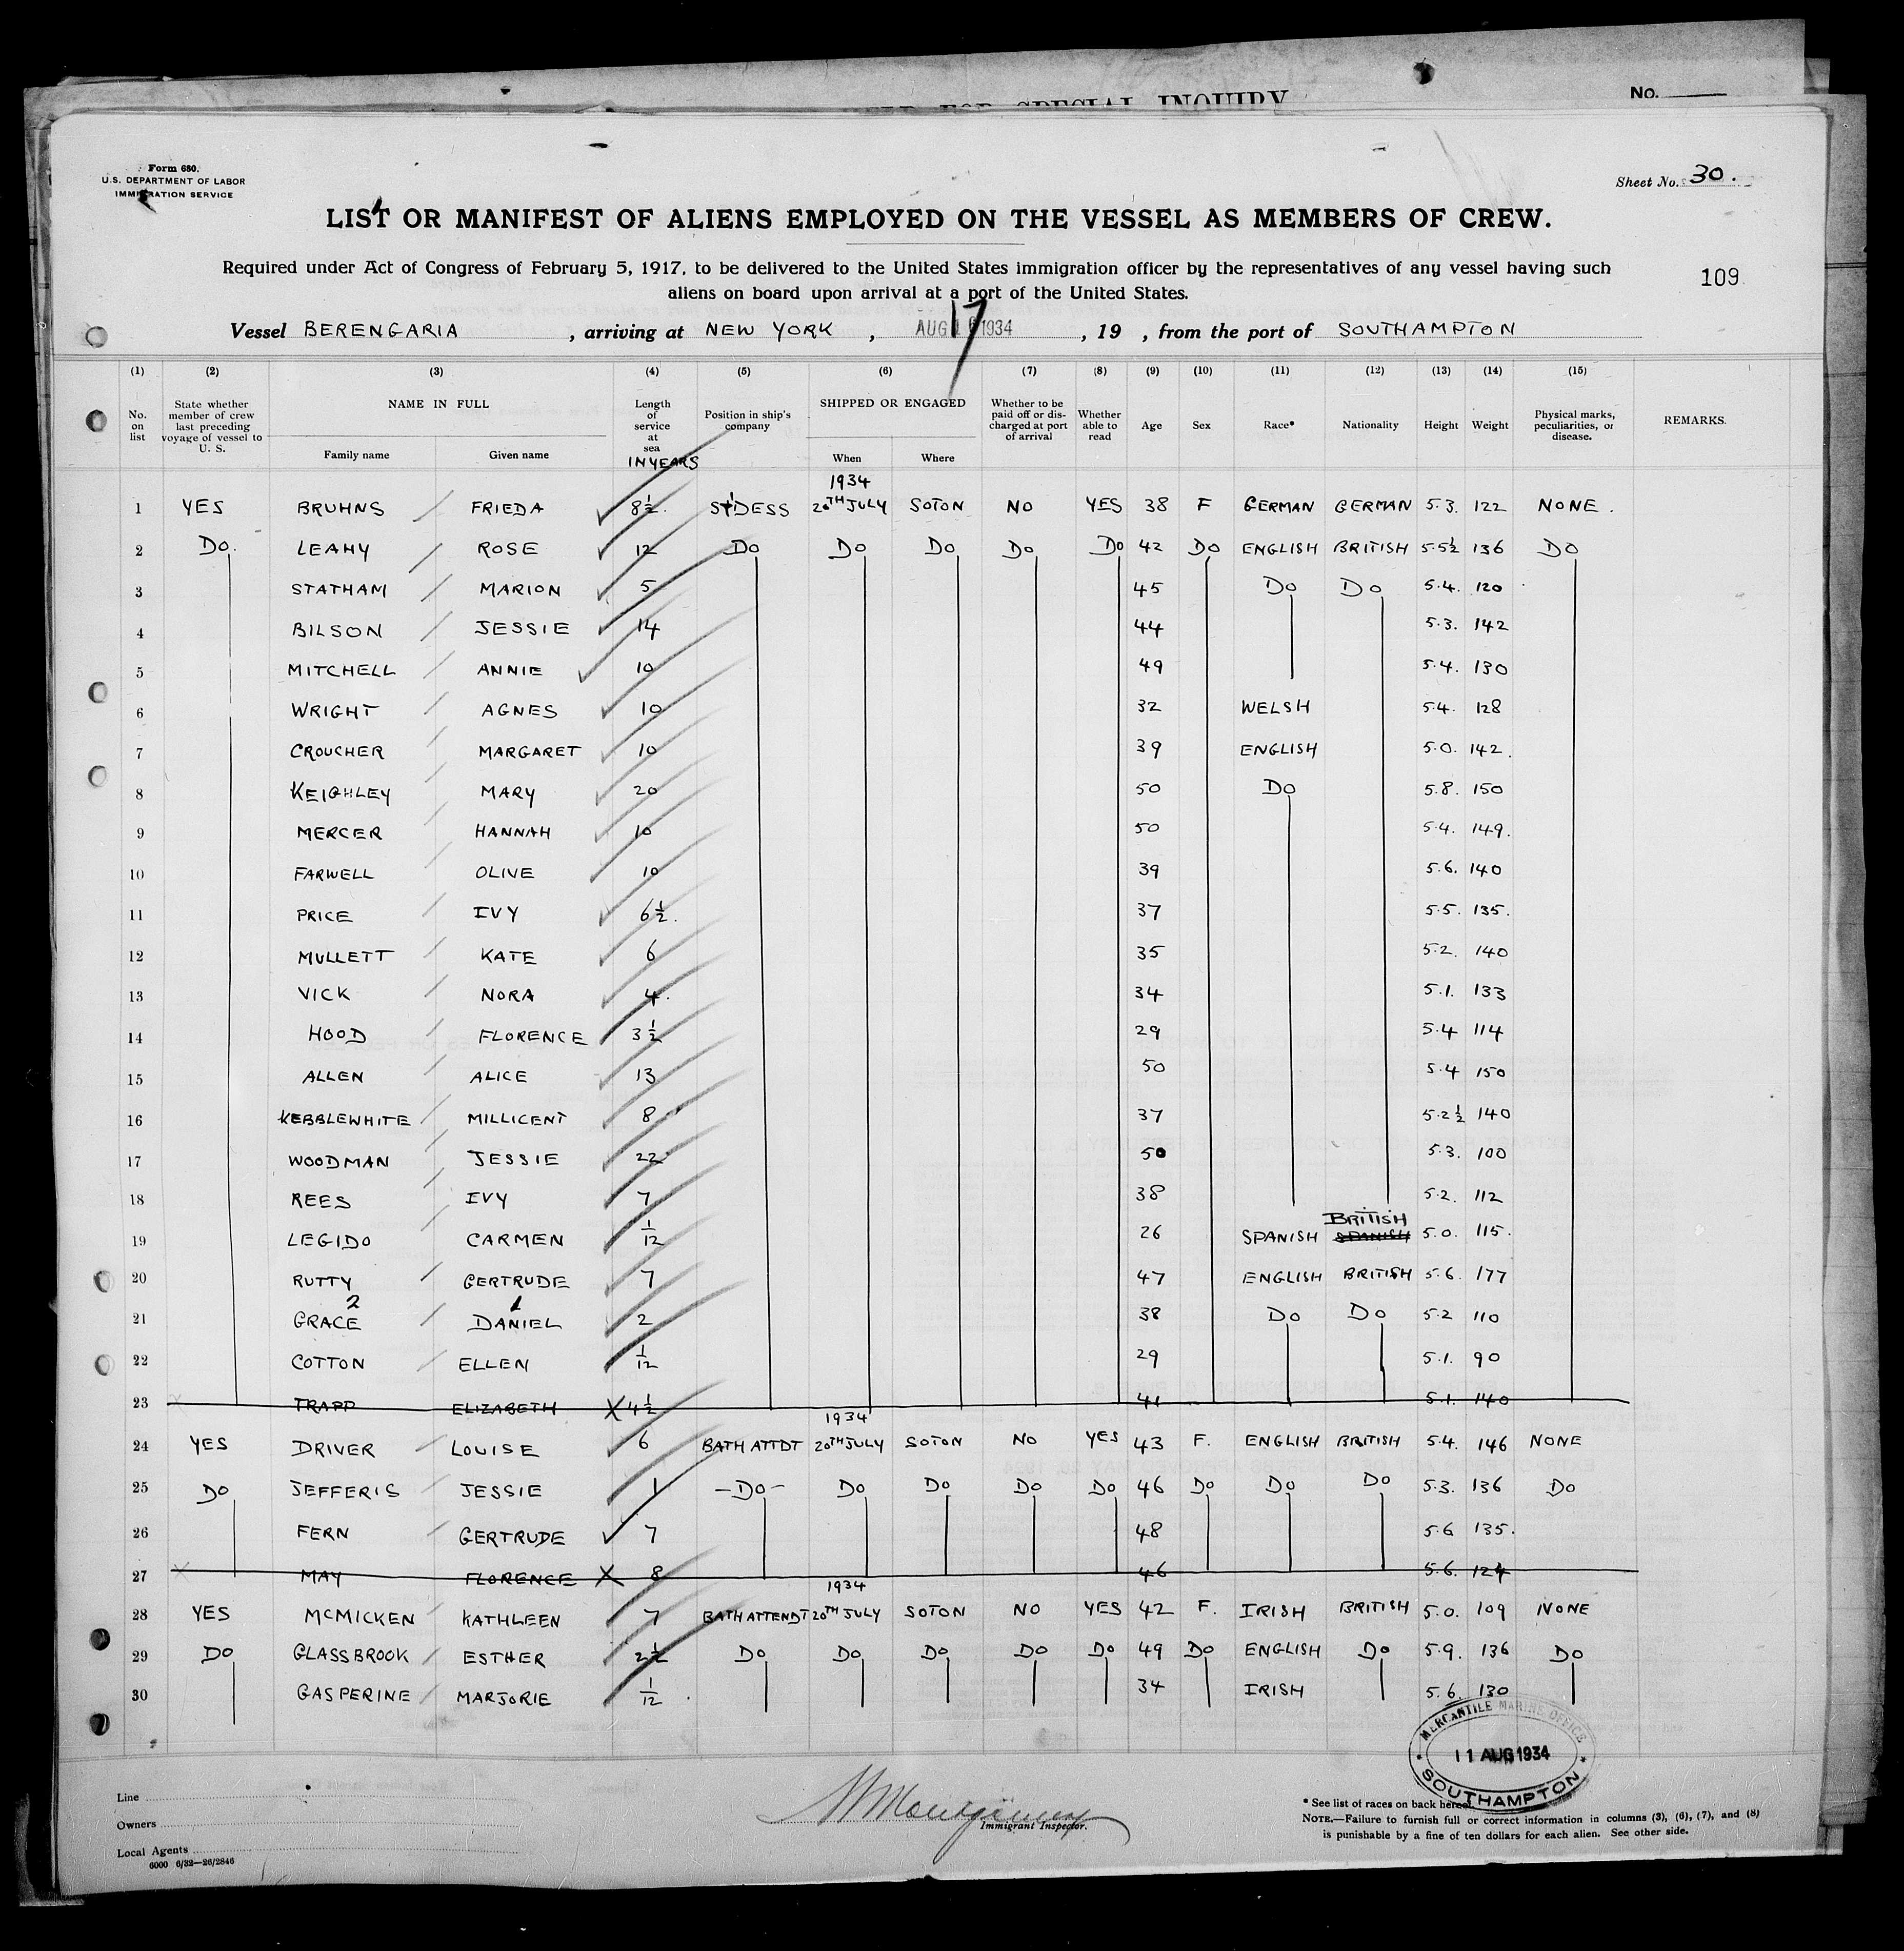 FOR SPECIAL INQUIRY
No.
Form 680.
U.S. DEPARTMENT OF LABOR
IMMIGRATION SERVICE
Sheet No. 30.
LIST OR MANIFEST OF ALIENS EMPLOYED ON THE VESSEL AS MEMBERS OF CREW.
Required under Act of Congress of February 5, 1917, to be delivered to the United States immigration officer by the representatives of any vessel having such
aliens on board upon arrival at a port of the United States.
109
Vessel BERENGARIA, arriving at NEW YORK, AUG 16 1934 17, 19 , from the port of SOUTHAMPTON
(1) (2) (3) (4) (5) (6) (7) (8) (9) (10) (11) (12) (13) (14) (15)
No. on list State whether member of crew last preceding voyage of vessel to U. S. NAME IN FULL Family name Given name Length of service at sea IN YEARS Position in ship's company SHIPPED OR ENGAGED When Where Whether to be paid off or discharged at port of arrival Whether able to read Age Sex Race* Nationality Height Weight Physical marks, peculiarities, or disease. REMARKS.
1934
1 YES BRUHNS FRIEDA 8½. STDESS 20TH JULY SOTON NO YES 38 F GERMAN GERMAN 5.3. 122 NONE.
2 Do. LEAHY ROSE 12 Do Do Do Do Do 42 Do ENGLISH BRITISH 5.5½ 136 Do
3 STATHAM MARION 5 45 Do Do 5.4. 120
4 BILSON JESSIE 14 44 5.3. 142
5 MITCHELL ANNIE 10 49 5.4. 130
6 WRIGHT AGNES 10 32 WELSH 5.4. 128
7 CROUCHER MARGARET 10 39 ENGLISH 5.0. 142.
8 KEIGHLEY MARY 20 50 Do 5.8. 150
9 MERCER HANNAH 10 50 5.4. 149.
10 FARWELL OLIVE 10 39 5.6. 140
11 PRICE IVY 6½. 37 5.5. 135.
12 MULLETT KATE 6 35 5.2. 140
13 VICK NORA 4. 34 5.1. 133
14 HOOD FLORENCE 3½ 29 5.4 114
15 ALLEN ALICE 13 50 5.4 150
16 KEBBLEWHITE MILLICENT 8 37 5.2½ 140
17 WOODMAN JESSIE 22 50 5.3. 100
18 REES IVY 7 38 5.2. 112
19 LEGIDO CARMEN 1/12 26 SPANISH BRITISH SPANISH 5.0. 115.
20 RUTTY GERTRUDE 7 47 ENGLISH BRITISH 5.6. 177
2 1
21 GRACE DANIEL 2 38 Do Do 5.2 110
22 COTTON ELLEN 1/12 29 5.1. 90
23 TRAPP ELIZABETH X 4½ 41 5.1. 140
1934
24 YES DRIVER LOUISE 6 BATH ATTDT 20TH JULY SOTON NO YES 43 F. ENGLISH BRITISH 5.4. 146 NONE
25 Do JEFFERIS JESSIE 1 -Do- Do Do Do Do 46 Do Do Do 5.3. 136 Do
26 FERN GERTRUDE 7 48 5.6 135.
27 MAY FLORENCE X 8 46 5.6. 124
1934
28 YES MCMICKEN KATHLEEN 7 BATH ATTENDT 20TH JULY SOTON NO YES 42 F. IRISH BRITISH 5.0. 109 NONE
29 Do GLASSBROOK ESTHER 2½ Do Do Do Do Do 49 Do ENGLISH Do 5.9. 136 Do
30 GASPERINE MARJORIE 1/12. 34 IRISH 5.6. 130
MERCANTILE MARINE OFFICE
11 AUG 1934
SOUTHAMPTON
Line
Owners
Local Agents
6000 6/32—26/2846
Montgomery
Immigrant Inspector.
* See list of races on back hereof.
NOTE.—Failure to furnish full or correct information in columns (3), (6), (7), and (8)
is punishable by a fine of ten dollars for each alien. See other side.